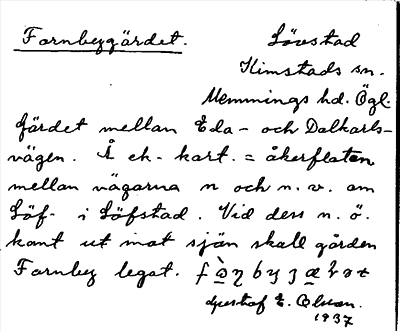 Farnbygärdet. Lövstad
Kimstads sn.
Memmings hd. Ögl.
Gärdet mellan Eda- och Dalkarls-
vägen. Å ek- kart. = åkerflaten
mellan vägarna n och n. v. om
Löf- i Löfstad. Vid dess n. ö.
kant ut mot sjön skall gården
Farnby legat.
Gustaf E. Olson.
1937